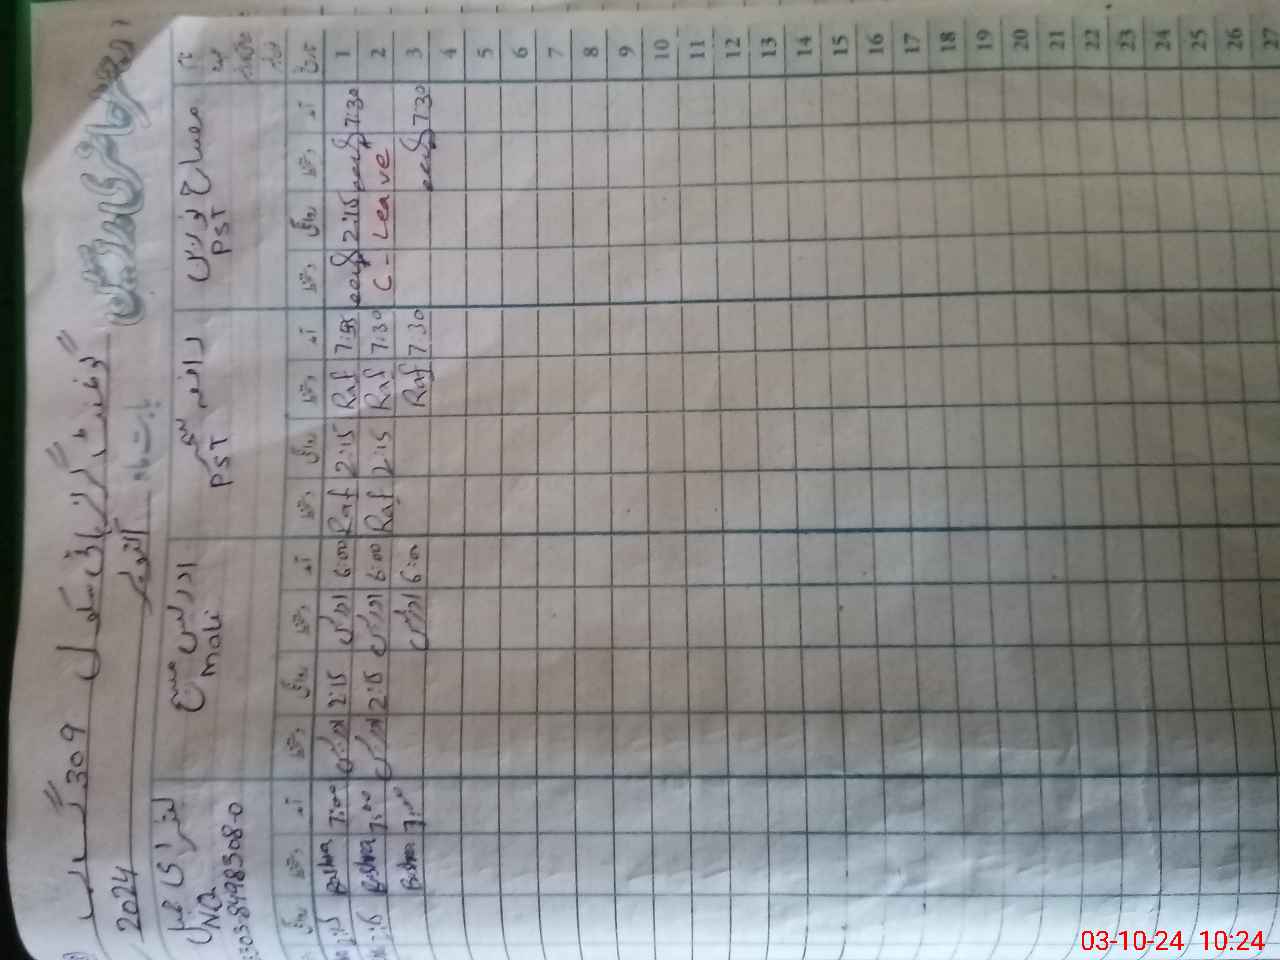 رجسٹر حاضری مدرسین
گورنمنٹ گرلز ہائی سکول 309 گ ب
بابت ماہ اکتوبر 2024
مصباح نورین رافعہ ادریس مسیح بشریٰ
PST PST mali NQ
تاریخ آمد دستخط روانگی دستخط آمد دستخط روانگی دستخط آمد دستخط روانگی دستخط آمد دستخط روانگی
1 7:30 2:15 Raf 2:15 Raf 6:00 ادریس 2:15 ادریس 7:00 Bushra 2:15
2 C - Leave 7:30 Raf 2:15 Raf 6:00 ادریس 2:15 ادریس 7:00 Bushra 2:15
3 7:30 7:30 Raf 6:00 ادریس 7:00 Bushra
4
5
6
7
8
9
10
11
12
13
14
15
16
17
18
19
20
21
22
23
24
25
26
27
03-10-24 10:24